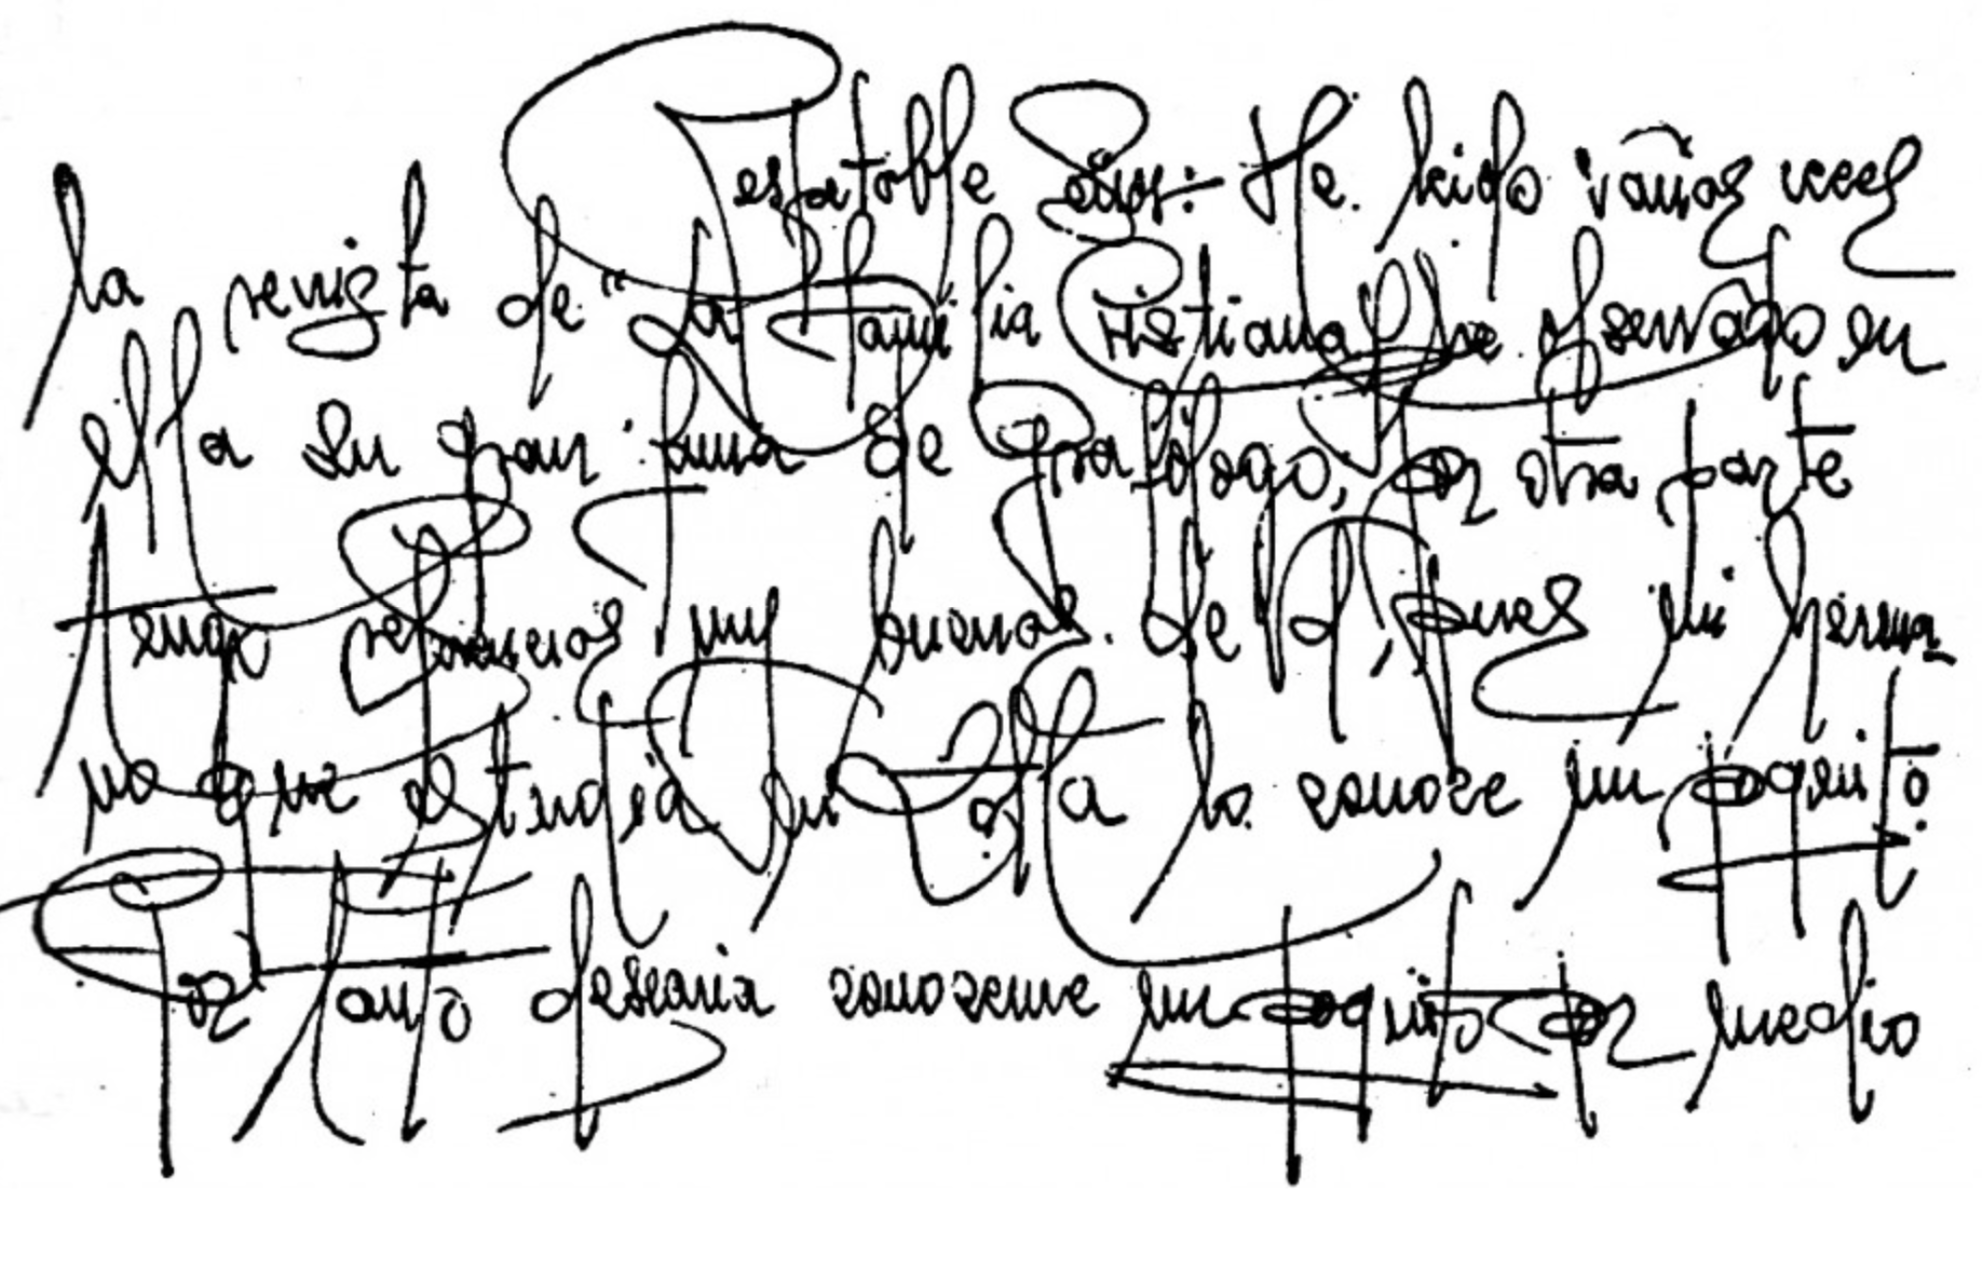 Respetable Señor: He leido varias veces
la revista de "La Familia Cristiana" he observado en
ella su gran fama de Grafologo, por otra parte
tengo referencias muy buenas de el, pues mi herma
no que estudia en lo conoce un poquito
Por tanto desearia conocerme un poquito por medio